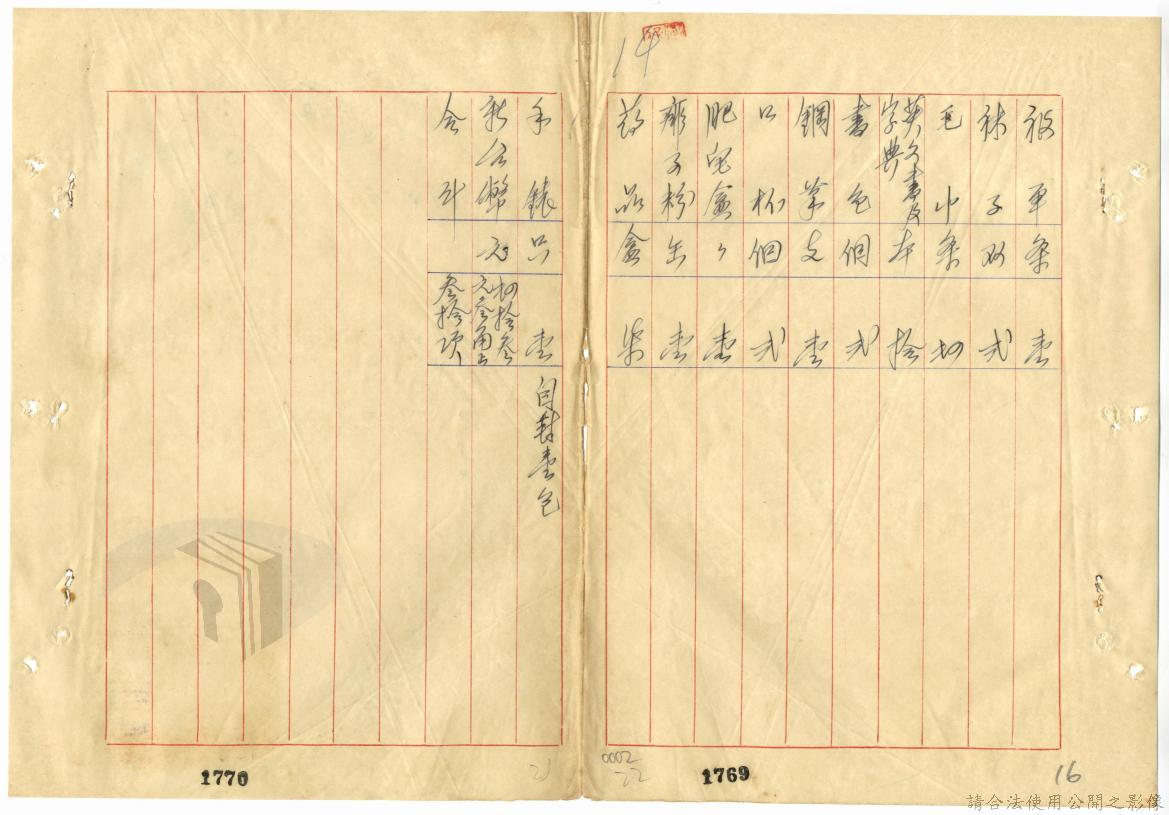 14
被單 条 壹
袜子 双 弍
毛巾 条 肆
英文書及字典 本 拾
書包 個 弍
鋼筆 支 壹
口杯 個 弍
肥皂盒 〃 壹
痱子粉 缶 壹
药品 盒 柒
手錶 只 壹 自封壹包
新台幣 元 肆拾叁元叁角正
合計 叁拾項
0002
22
1769
16
1770
21
請合法使用公開之影像